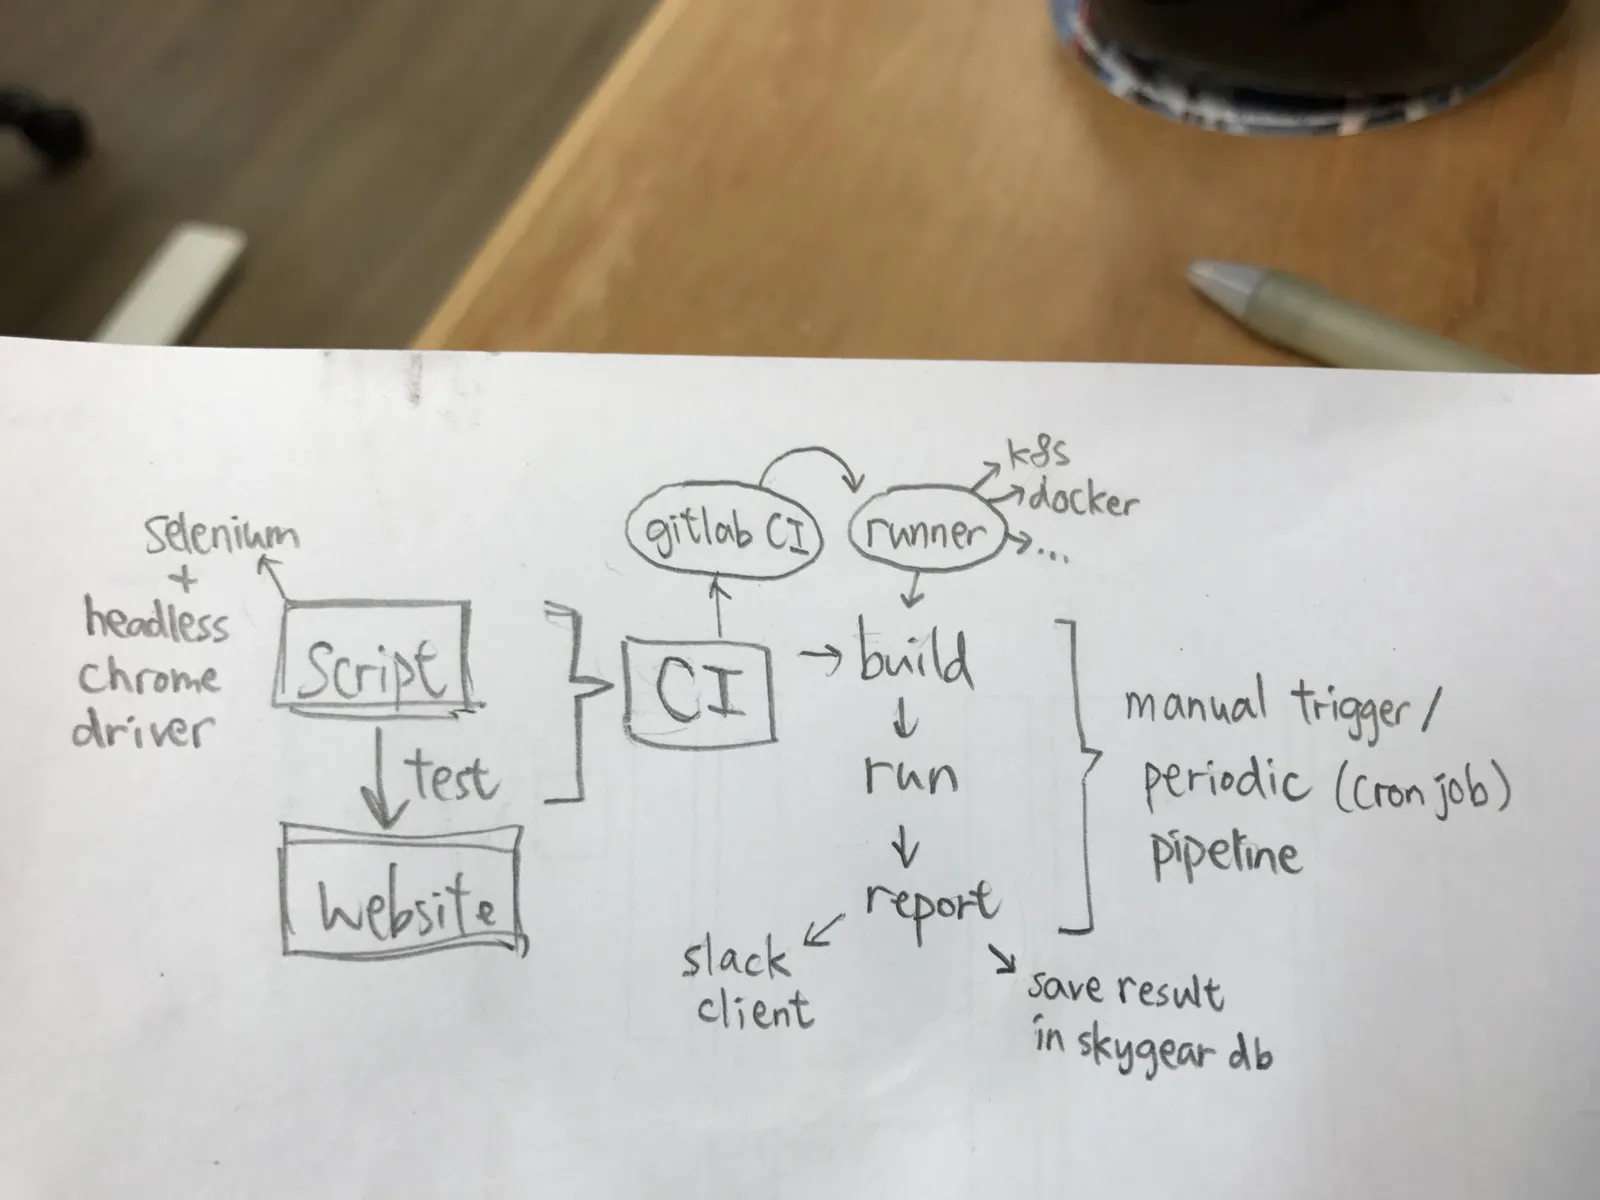 selenium
+
headless
chrome
driver
script
test
website
CI
gitlab CI
runner
k8s
docker
...
build
run
report
slack
client
save result
in skygear db
manual trigger /
periodic (cron job)
pipeline